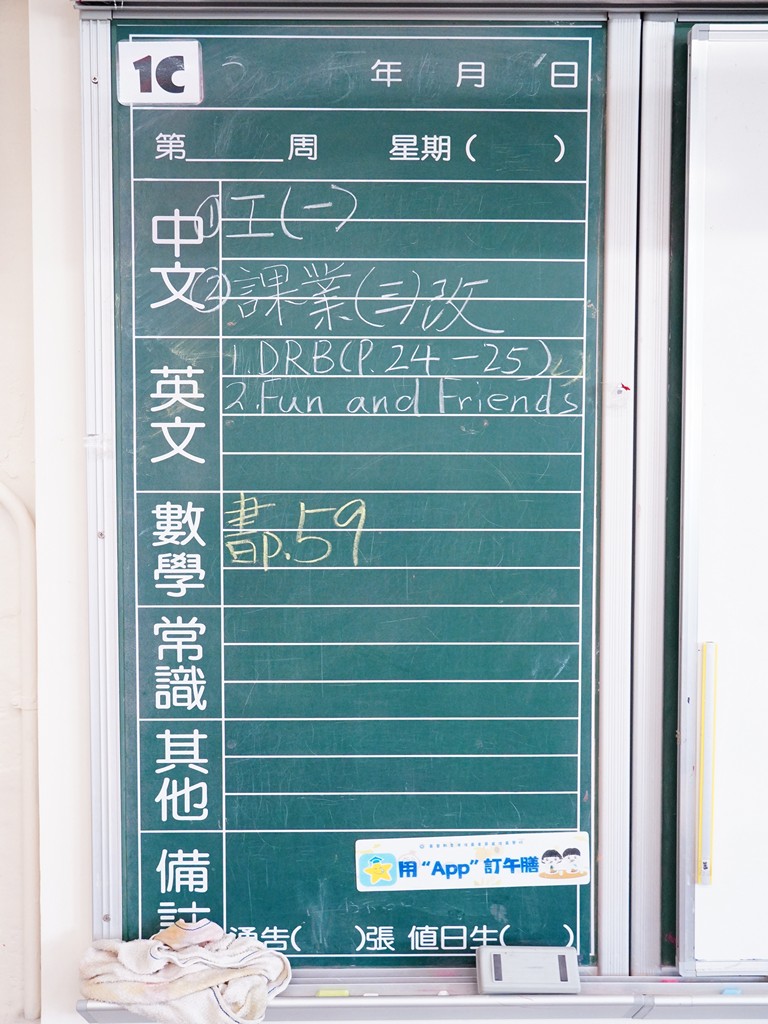 1C
年 月 日
第 周 星期( )
中文
①工(一)
②課業(三)改
英文
1.DRB(P.24-25)
2.Fun and Friends
數學
書p.59
常識
其他
備註
用“App”訂午膳
通告( )張 值日生( )